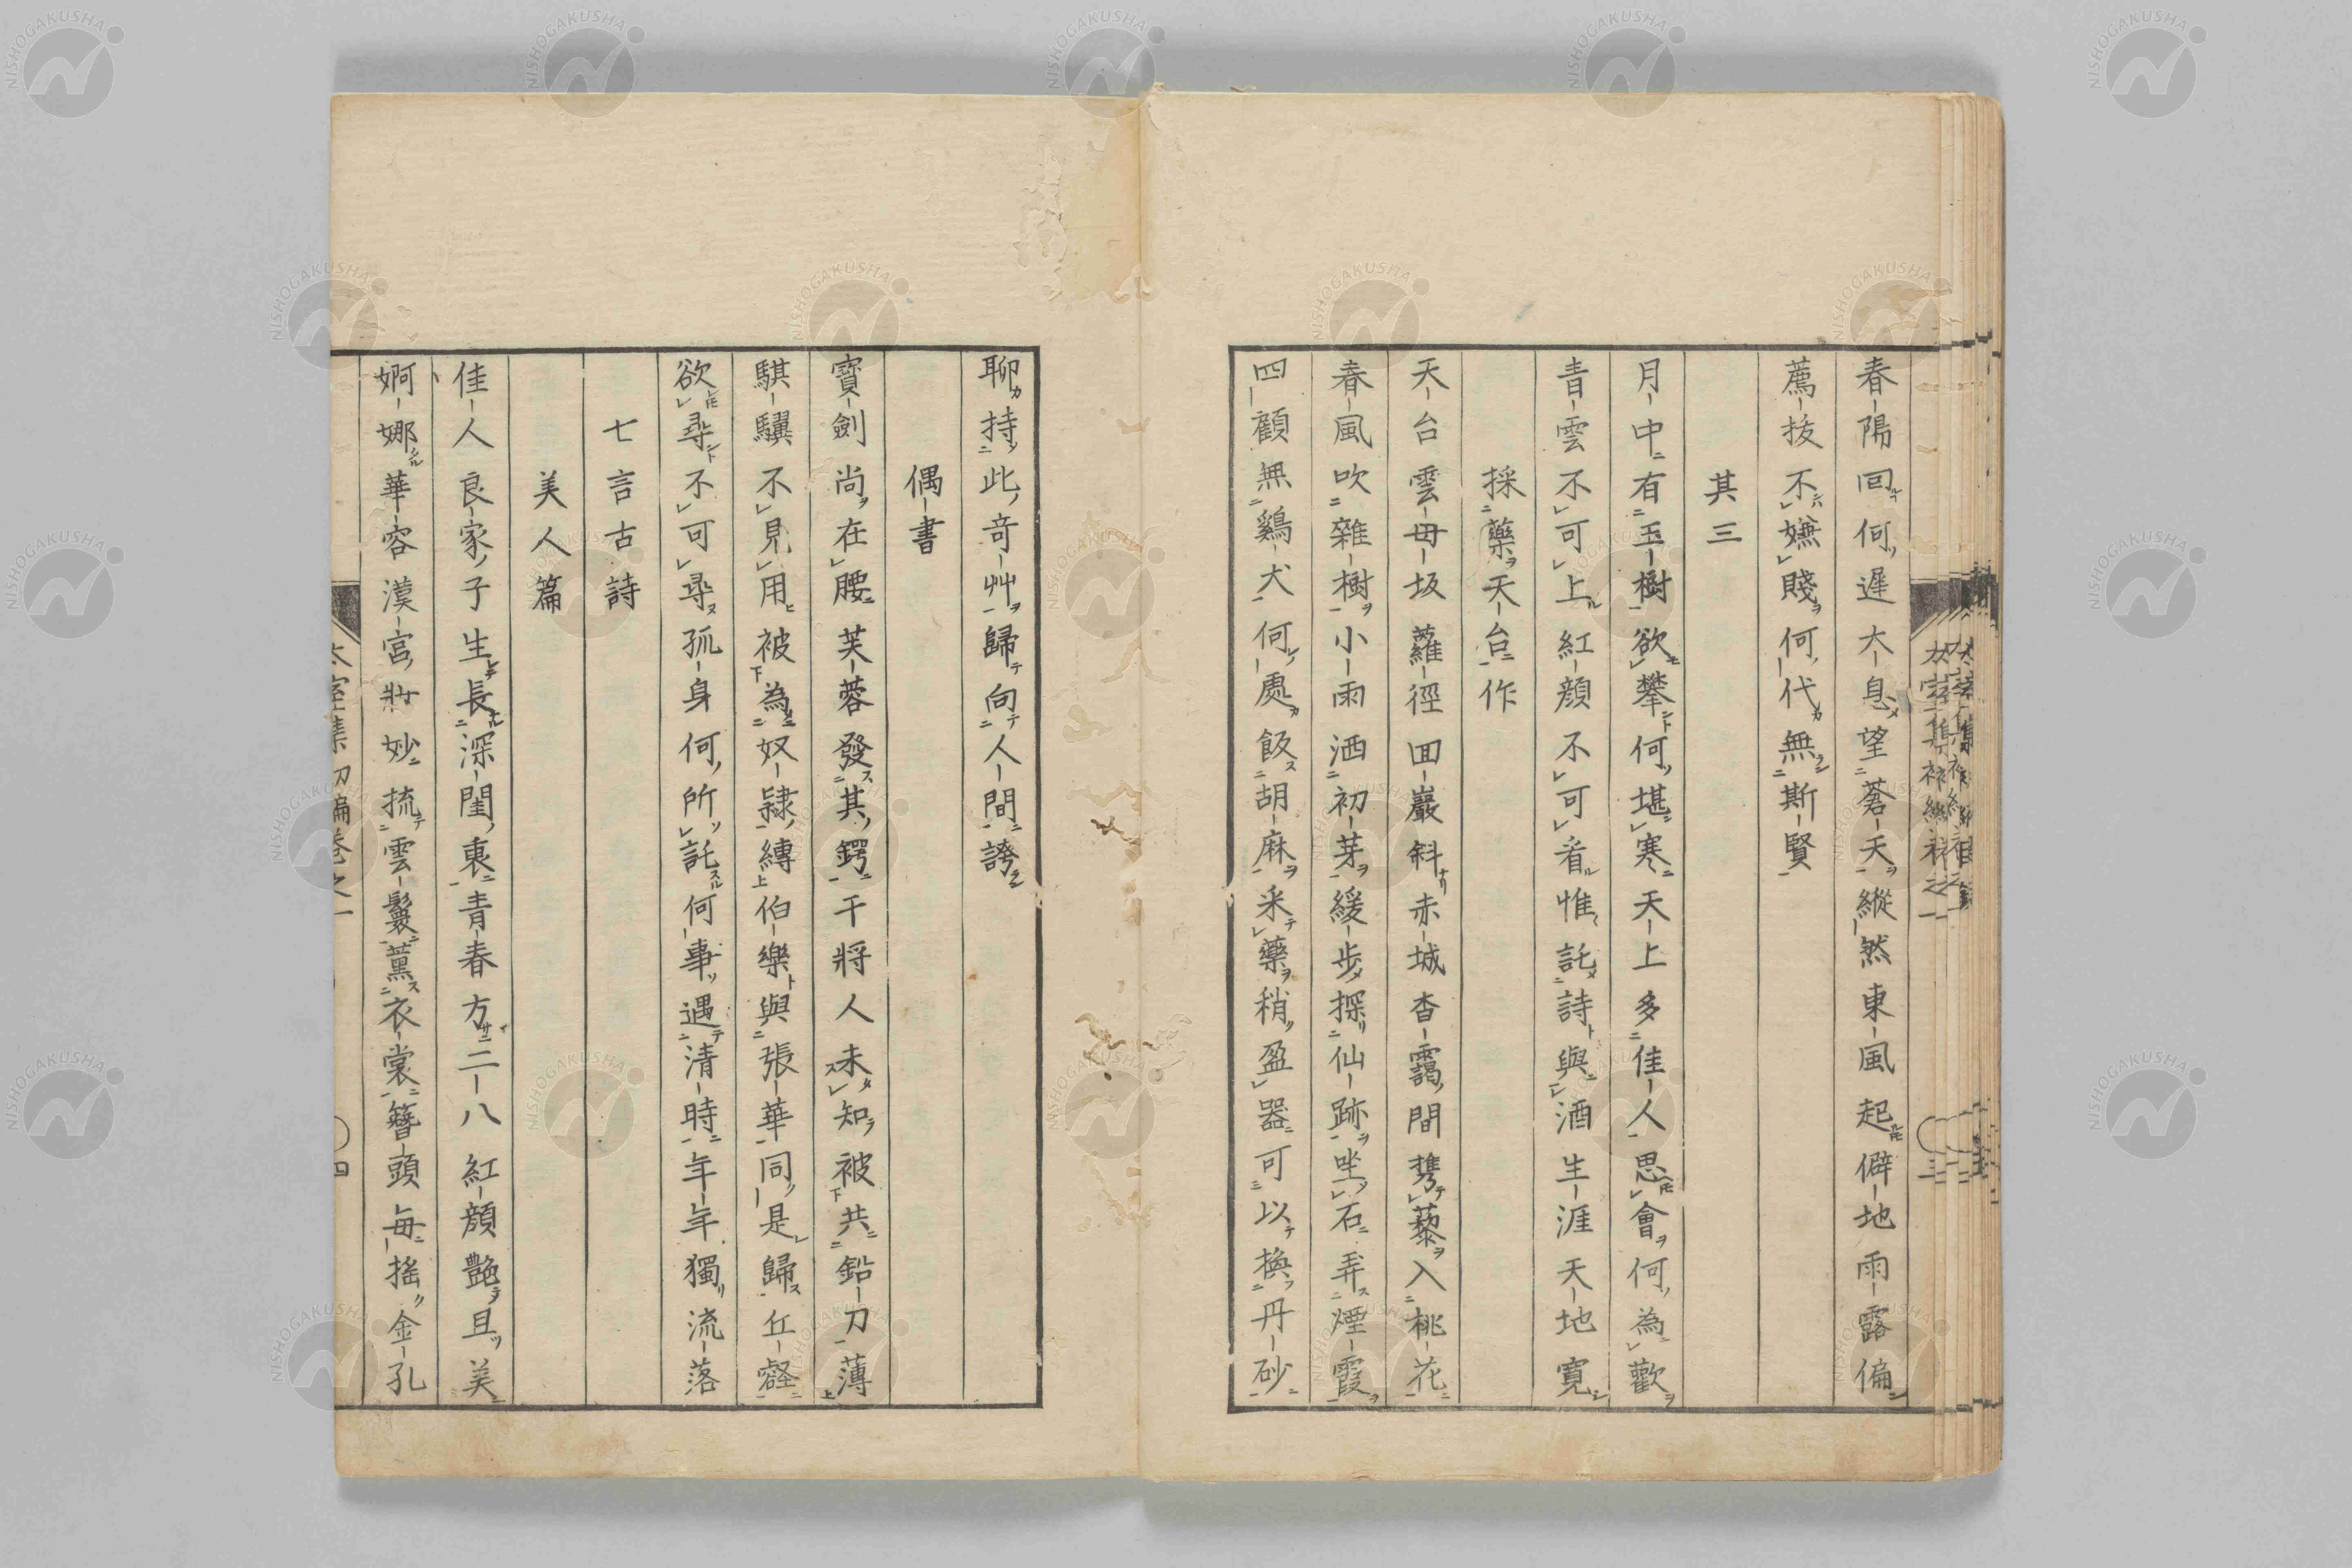 春陽回何遲大息望蒼天縱然東風起僻地雨露偏
薦抜不嫌賤何代無斯賢
其三
月中有玉樹欲攀何堪寒天上多佳人思會何為歡
青雲不可上紅顔不可看惟託詩與酒生涯天地寛
採藥天台作
天台雲母坂蘿徑回巖斜赤城杳靄間携藜入桃花
春風吹雜樹小雨洒初芽緩步探仙跡坐石弄煙霞
四顧無鷄犬何處飯胡麻采藥稍盈器可以換丹砂
聊持此奇艸歸向人間誇
偶書
寶劍尚在腰芙蓉發其鍔干將人未知被共鉛刀薄
騏驥不見用被為奴隷縛伯樂與張華同是歸丘壑
欲尋不可尋孤身何所託何事遇清時年年獨流落
七言古詩
美人篇
佳人良家子生長深閨裏青春方二八紅顔艷且美
婀娜華容漢宮妝妙梳雲鬟薰衣裳簪頭毎搖金孔
太室集初編卷之一 四
NISHOGAKUSHA